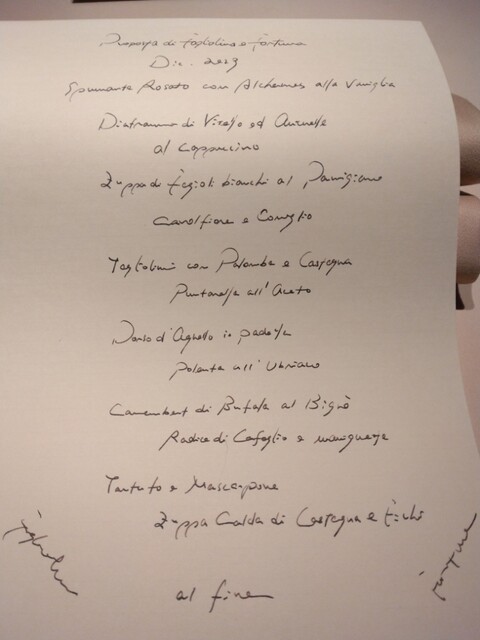 Proposta di Fogliolina e Fortuna
Dic. 2023
Spumante Rosato con Alchermes alla Vaniglia
Diaframma di Vitello ed Animelle
al Cappuccino
Zuppa di Fagioli bianchi al Parmigiano
Cavolfiore e Coniglio
Tagliolini con Palomba e Castagna
Puntarelle all'Aceto
Dorso d'Agnello in padella
Polenta all'Ubriaco
Camembert di Bufala al Bignè
Radice di Cefoglio e
Tartufo e Mascarpone
Zuppa Calda di Castagna e Fichi
al fine